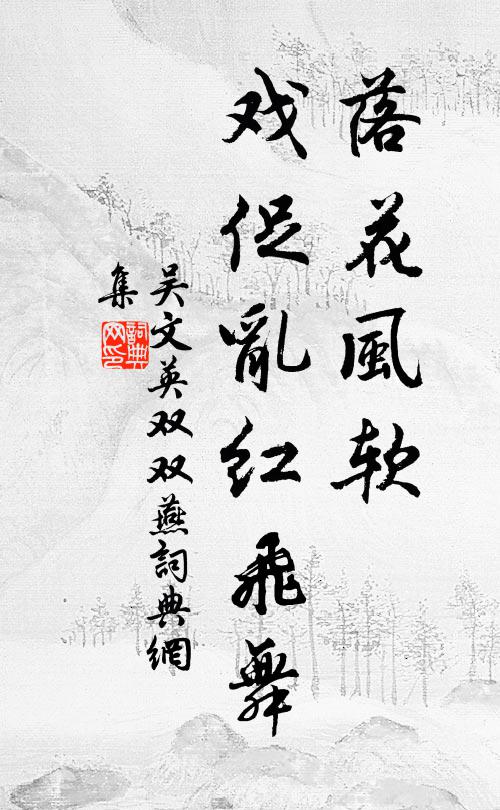 落花風软
戏促亂红飛舞
吴文英双双燕詞典網
集
詞典網印